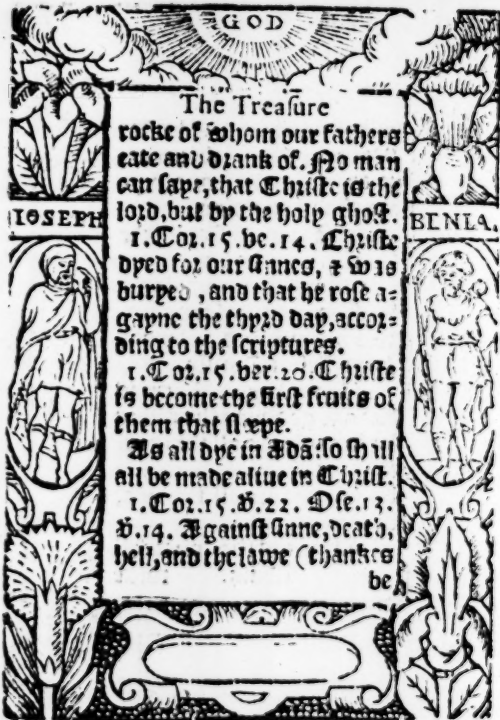 GOD
The Treasure
rocke of whom our fathers
eate and drank of. No man
can saye, that Christe is the
lord, but by the holy ghost.
1. Cor. 15. ve. 14. Christe
dyed for our sinnes, & was
buryed, and that he rose a=
gayne the thyrd day, accor=
ding to the scriptures.
1. Cor. 15. ver. 20. Christe
is become the first fruits of
them that slepe.
As all dye in Adā: so shall
all be made aliue in Christ.
1. Cor. 15. v. 22. Ose. 13.
v. 14. Against sinne, death,
hell, and the lawe (thankes
be
IOSEPH
BENIA.